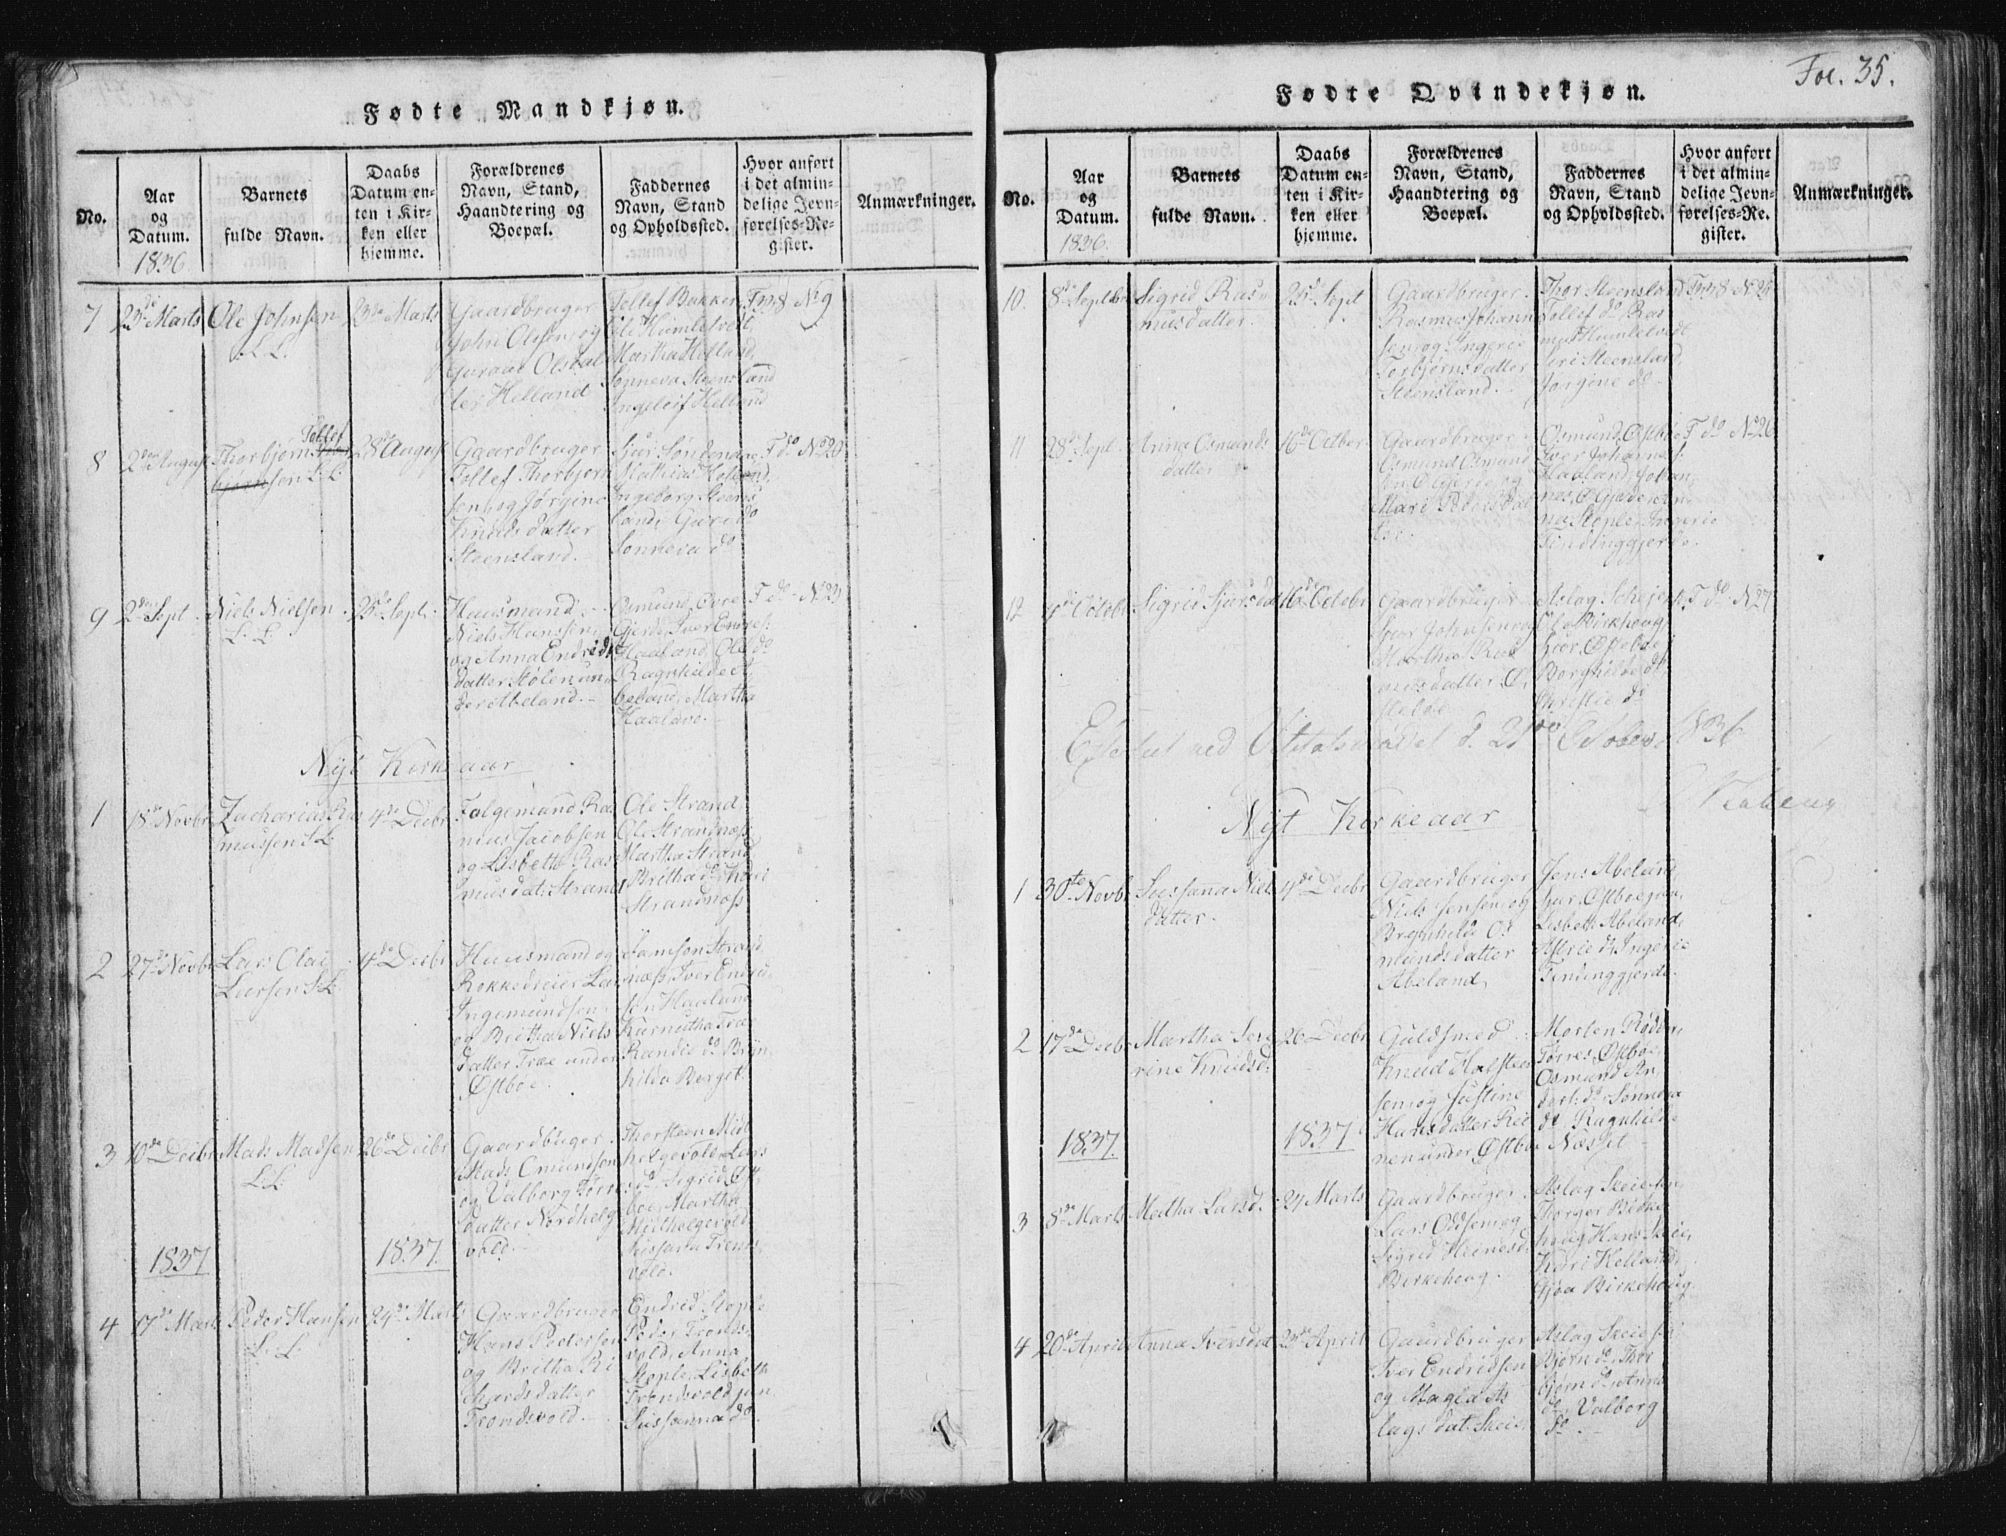 Fødte Mandkjøn.
No.
Aar
og
Datum.
1836
Barnets
fulde Navn.
Daabs
Datum en-
ten i Kir-
ken eller
hjemme.
Forældrenes
Navn, Stand,
Haandtering og
Boepæl.
Faddernes
Navn, Stand
og Opholdssted.
Hvor anført
i det almin-
delige Jevn-
førelses-Re-
gister.
Anmærkninger.
7
23de Marts
Ole Johnsen
L.L.
23de Marts
Gaardbruger
John Olsen og
Guroe Olsdat
ter Helland
Tollef Bakken
Ole Humlefvedt
Martha Helland
Sonneva Steensland
Ingeleif Helland
F 328 No 9
8
2den August
Thorbjørn
Tollef
sen L.L.
28de August
Gaardbruger
Tollef Thorbjørn
sen og Jørgine
Knudsdatter
Steensland.
Sjur Søndenaae
Mathias
Ingeborg Steens
land, Guri do
Sonneva do
F do No 20
9
2den Sept.
Niels Nielsen
L. L.
25de Sept.
Huusmand
Niels Hansen
og Anna Endrids
datter Stølen un
der Abeland.
Osmund Øvre
Gjerde, Iver Endres:
Haaland, Ole do
Ragnhilde A
beland, Martha
Haaland.
F do No 23
Nyt Kirkeaar
1
18de Novbr
Zacharias Ras
mussen L.L.
4de Decbr
Følgemand Ras
mus Jacobsen
og Lisbeth Ras
musdat: Strand
Ole Strand
Ole Strandnæss
Martha Strand
Britha do, Kari
Strandnæss
2
27de Novbr
Lars Olai
Larsen L.L.
4de Decbr
Huusmand og
Rokkedreier Lars
Ingemundsen
og Britha Niels
datter Træe under
Østboe.
Samson Strand
næss, Iver Endrid
sen Haaland
Træ
Randie do Bryn
hilda Berget.
3
10de Decbr
Mads Madsen
L.L.
26de Decbr
Gaardbruger
Mads Omundsen
og Valborg Tørres
datter Nordhelg
vold.
Thorsteen Midt
helgevold, Lars
do Sigrid Øst
boe, Martha
Midthelgevold
Sussana Trons
vold.
1837
1837.
4
17de Marts
Peder Hansen
L.L.
24de Marts
Gaardbruger
Hans Pedersen
og Britha Ri
chardsdatter
Trondsvold.
Endred Stople
Peder Tronds
vold, Anna
Stople, Lisbeth
Trondsvold
Sussanna do.
Fol. 35.
Fødte Qvindekjøn.
No.
Aar
og
Datum.
1836.
Barnets
fulde Navn.
Daabs
Datum en-
ten i Kir-
ken eller
hjemme.
Forældrenes
Navn, Stand,
Haandtering og
Boepæl.
Faddernes
Navn, Stand
og Opholdssted.
Hvor anført
i det almin-
delige Jevn-
førelses-Re-
gister.
Anmærkninger.
10.
8de Septbr
Sigrid Ras
musdatter.
25de Sept
Gaardbruger
Rasmus Johann
sen og Ingerie
Torbjørnsdatter
Steensland.
Thor Steensland
Tollef do, Ras
mus Humlefvedt
Guri Steensland
Jørgine do
F 328 No 24
11
28de Sept.
Anna Osmunds
datter
16de Octbr
Gaardbruger
Osmund Osmund
sen Ø Gjerde og
Mari Pedersdat
ter.
Osmund Østboe
Iver Johannes:
Haaland, Johan
nes Ø Gjerde, An
na Stople, Ingerie
Tindinggjerde.
F do No 26
12
4de Octobr
Sigrid Sjursdat
16de Octobr
Gaardbruger
Sjur Johnsen og
Martha Ras
musdatter Ø
steboe
Aslag
Ole Birkhoug
Sjur Østeboe
Borghilde do
Christie do
F do No 27
Efterseet ved Visitatsmødet d. 21de October 1836
Nyt Kirkeaar
1
30te Novbr
Sussana Niel
datter.
4de Decbr
Gaardbruger
Niels Jensen og
Brynhilde Os
mundsdatter
Abeland,
Jens Abeland
Sjur Østboe
Lisbeth Abeland
do, Ingerie
Tindinggjerde
2
17de Decbr
Martha Seve
rine Knudsd:
26 Decbr
Guldsmed
Knud Halsteen
sen og Justine
Hansdatter Rei
nen under Østboe
Morten Rødne,
Tørres Østboe
Osmund An
do, Sønneva
do Ragnhilde
Næsset
1837.
1837
3
8de Marts
Matha Larsd:
24 Marts
Gaardbruger
Lars Oddsen og
Sigrid Heinesd:
Birkehoug.
Aslag Skeie,
Thorger Birke
houg Hans Skeie,
Kari Helland,
Gjoa Birkehoug.
4
20de April
Anna Iversdat
23de April
Gaardbruger
Iver Endridsen
og Magla As
lagsdat: Skeie
Aslag Skeie
Bjørn do, Thor
bjørn do, Anna
do, Valborg
do.